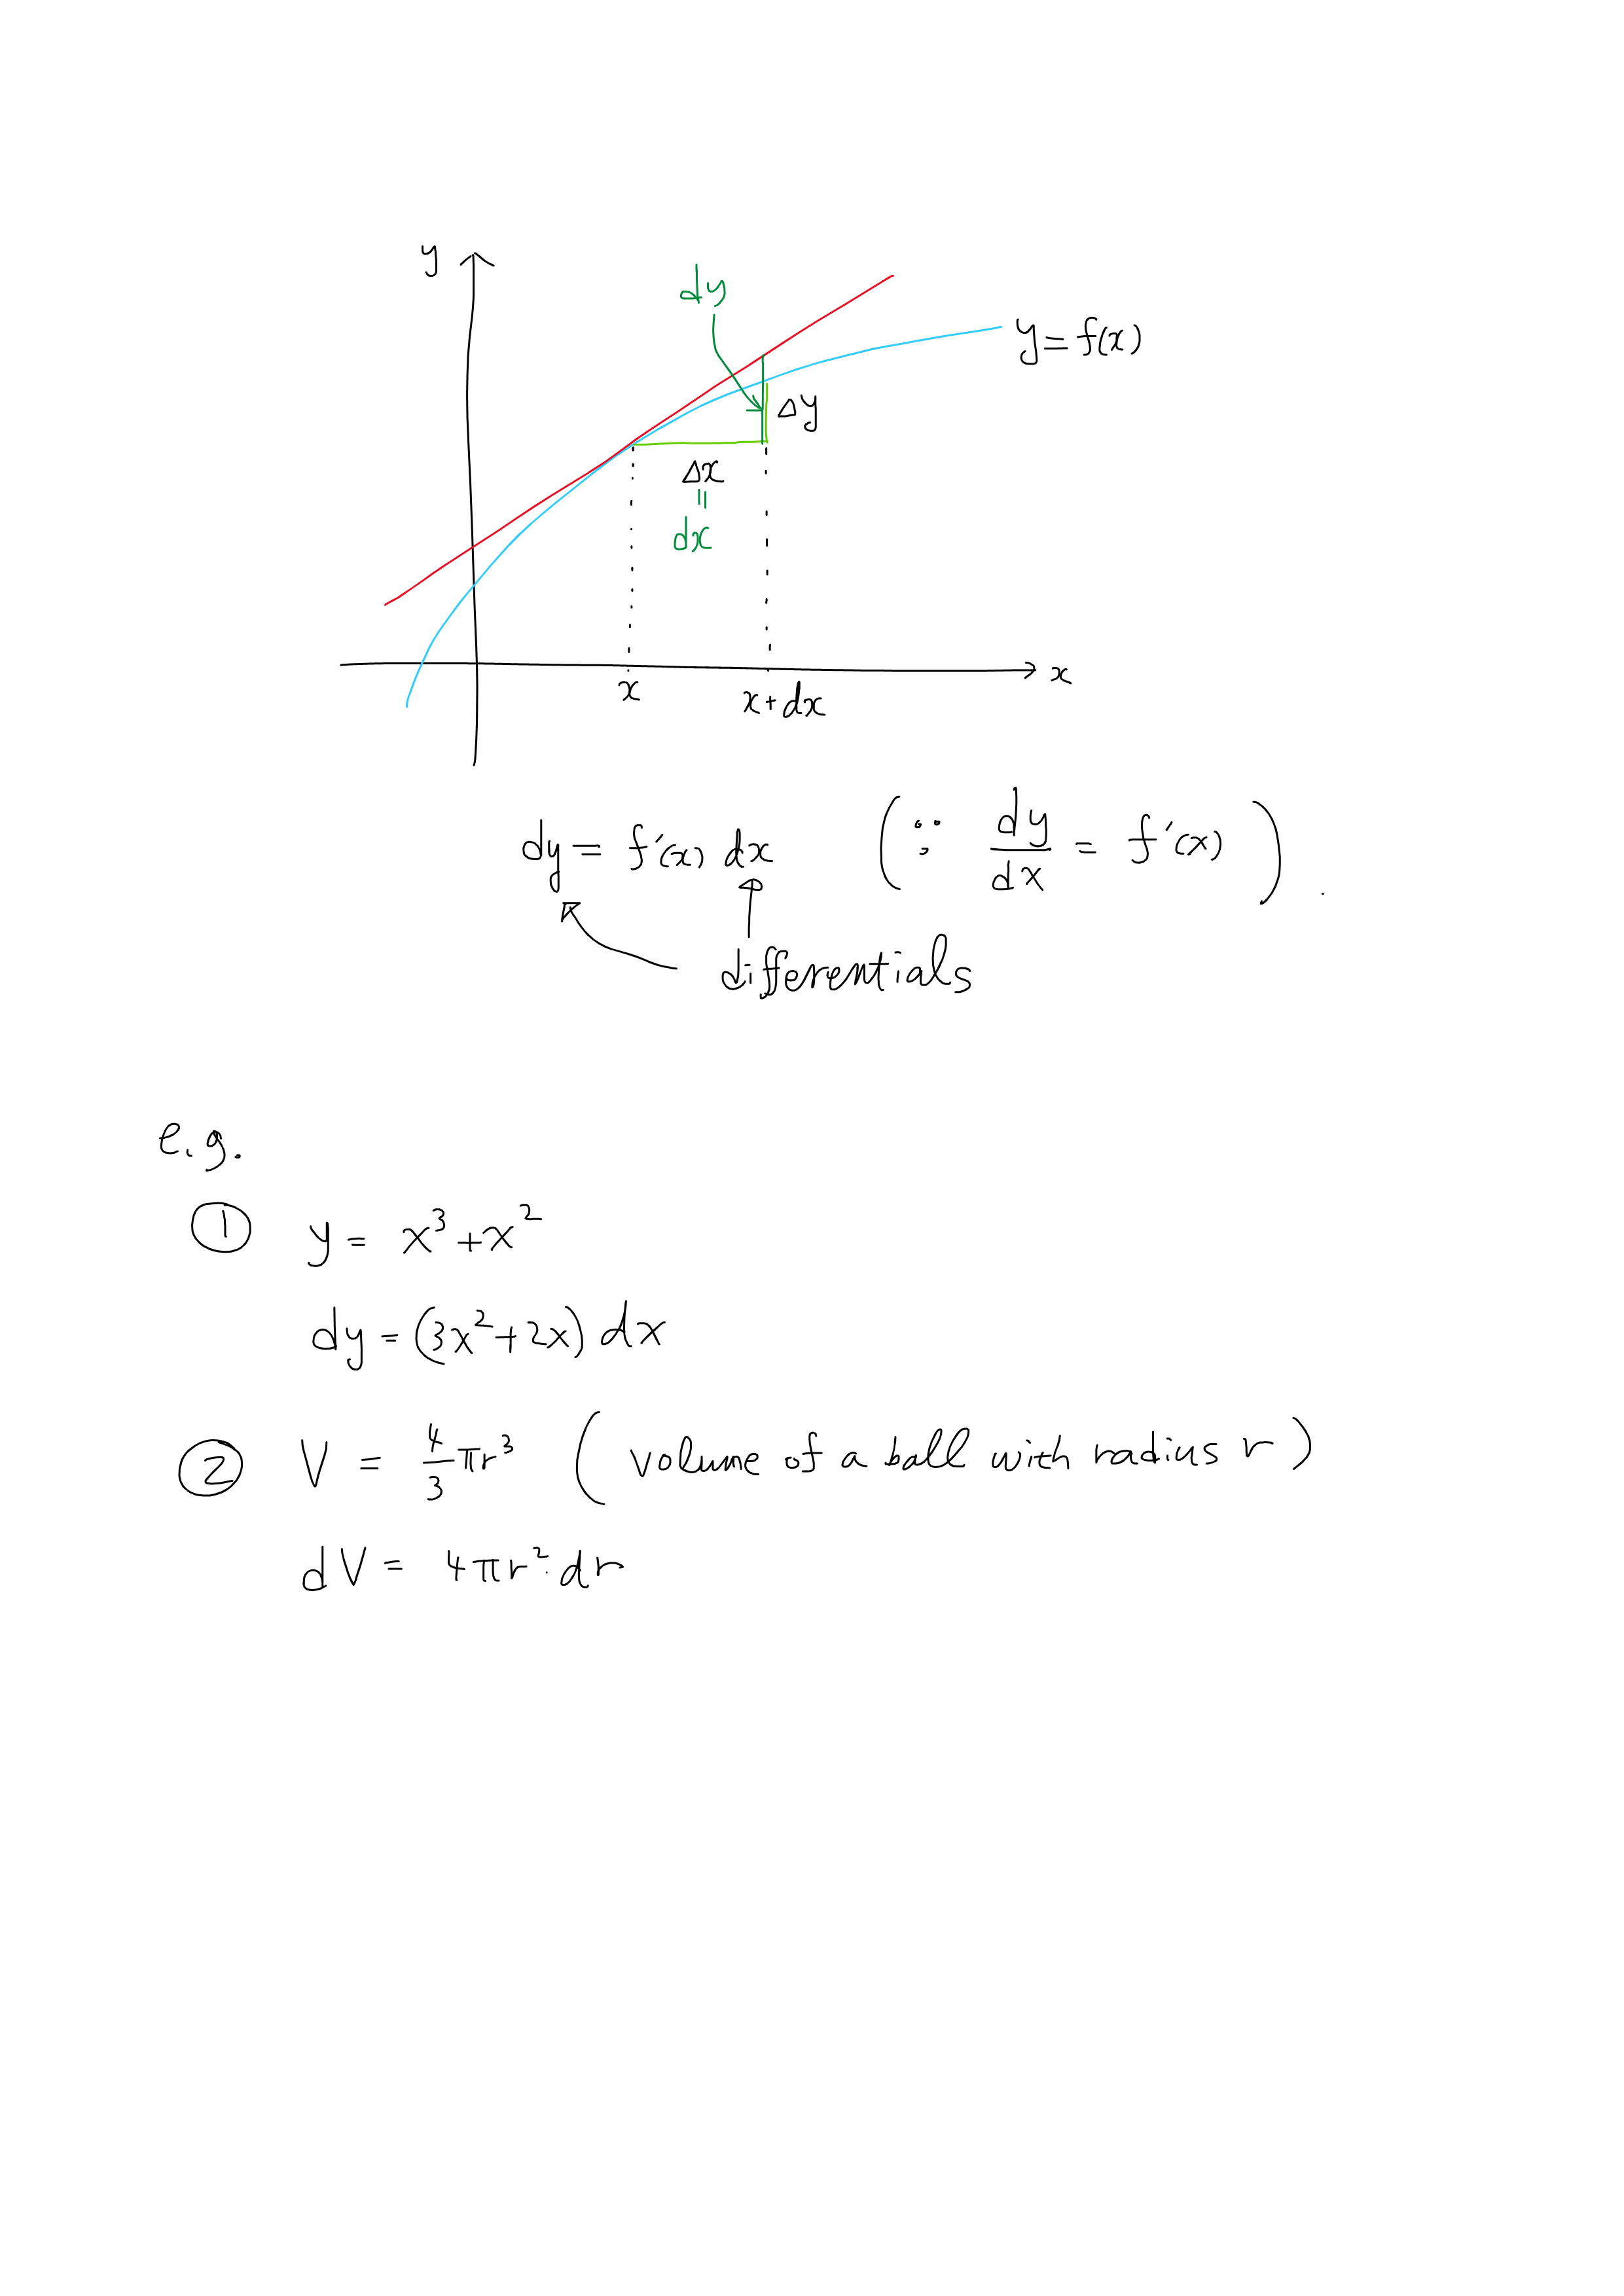 y
dy
y = f(x)
Δy
Δx
=
dx
x
x
x+dx
dy = f'(x) dx (∵ dy/dx = f'(x)).
differentials
e.g.
① y = x³+x²
dy = (3x²+2x) dx
② V = 4/3 πr³ (volume of a ball with radius r)
dV = 4πr²·dr